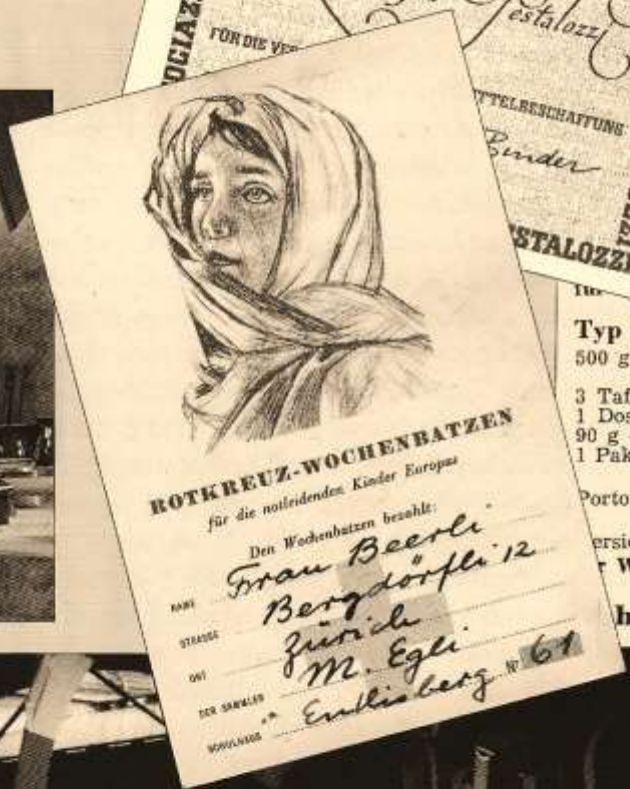 OCIAZ
FÜR DIE VER
estalozz
TTELBESCHAFFUNG
Binder
STALOZZI
Typ
500 g
3 Taf
1 Dos
90 g
1 Pak
Porto
ersic
r W
h
ROTKREUZ-WOCHENBATZEN
für die notleidenden Kinder Europas
Den Wochenbatzen bezahlt:
NAME Frau Beerli
STRASSE Bergdörfli 12
ORT Zürich
DER SAMMLER M. Egli
SCHULHAUS Entlisberg Nº 61